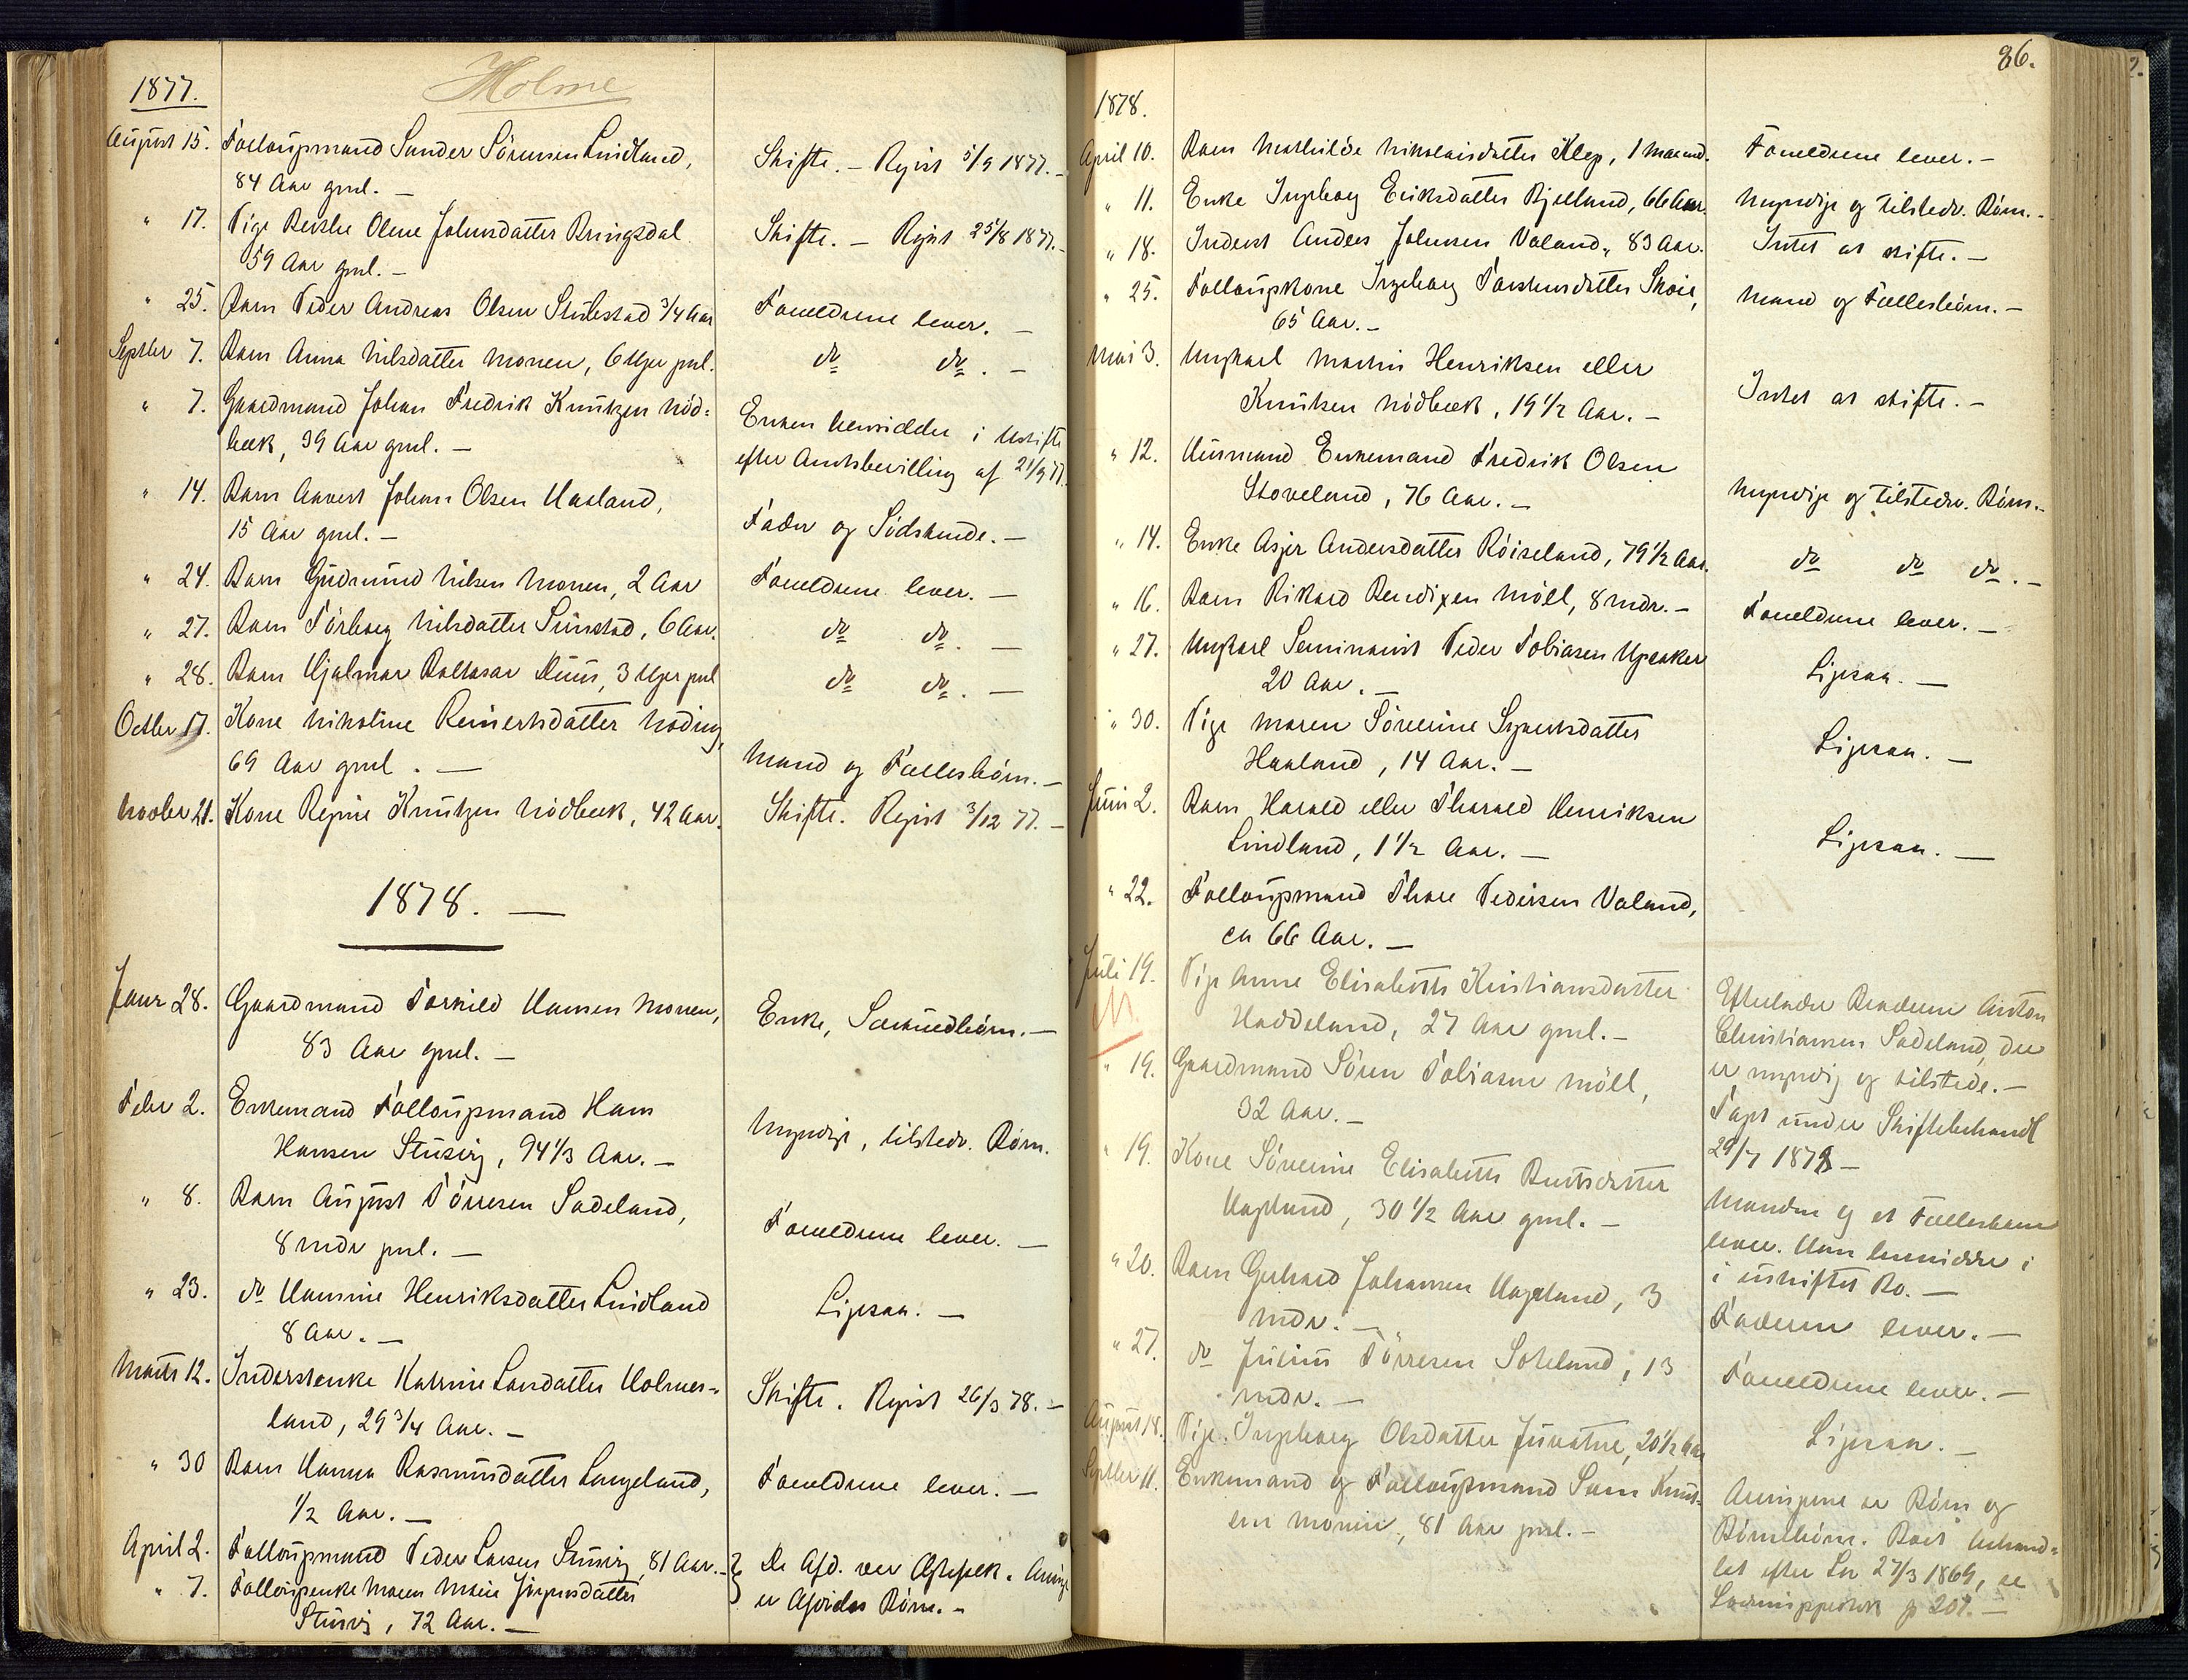 Holme
1877.
August 15. Folloupmand Sunder Sörensen Lindland, Skifte. – Regist 5/9 1877. –
84 Aar gml. –
" 17. Pige Berthe Oline Johnsdatter Bringsdal Skifte. – Regist 25/8 1877. –
59 Aar gml. –
" 25. Barn Peder Andreas Olsen Stubstad 3/4 Aar Forældrene lever. –
Septbr 7. Barn Anna Nilsdatter Monen, 6 Uger gml. do do. –
" 7. Gaardmand Johan Fredrik Knutzen Nöd= Enken hensidder i Uskifte
bæk, 39 Aar gml. – efter Amtsbevilling af 21/9 77.
" 14. Barn Aavert Johan Olsen Uasland, Fader og Södskende. –
15 Aar gml. –
" 24. Barn Gudmund Nilsen Monen, 2 Aar Forældrene lever. –
" 27. Barn Törborg Nilsdatter Sunstad, 6 Aar. do do. –
" 28. Barn Hjalmar Baltasar Duus, 3 Uger gml do do. –
Octbr 17. Kone Nikoline Reinertsdatter Nöding,
69 Aar gml. – Mand og Fællesbörn. –
Novbr 21. Kone Regine Knutzen Nödbæk, 42 Aar. Skifte. Regist 3/12 77. –
1878. –
Janr 28. Gaardmand Torkild Hansen Monen, Enke, Særkuldbörn. –
83 Aar gml. –
Febr 2. Enkemand Folloupmand Hans Myndige, tilstedv. Börn.
Hansen Stusvig, 94 1/3 Aar. –
" 8. Barn August Törresen Sodeland, Forældrene lever. –
8 Mdr gml. –
" 23. do Hansine Henriksdatter Lindland Ligesaa. –
8 Aar. –
Marts 12. Inderstenke Katrine Larsdatter Holmes= Skifte. Regist 26/3 78. –
land, 29 3/4 Aar. –
" 30 Barn Hanna Rasmusdatter Langeland, Forældrene lever. –
1/2 Aar. –
April 2. Folloupmand Peder Larsen Stusvig, 81 Aar. – De Afd. var Ægtefolk. Arving
" 7. Folloupenke Maren Marie Jörgensdatter er Afdödes Börn. –
Stusvig, 72 Aar. –
86.
1878.
April 10. Barn Mathilde Nikolaisdatter Klep, 1 Maaned. Forældrene lever. –
" 11. Enke Ingeborg Eriksdatter Bjelland, 66 Aar. Myndige og tilstedv. Börn. –
" 18. Inderst Anders Johnsen Valand, 83 Aar. Intet at skifte. –
" 25. Folloupkone Ingeborg Torstensdatter Skoie, Mand og Fællesbörn. –
65 Aar. –
Mai 3. Ungkarl Martin Henriksen eller Intet at skifte. –
Knutsen Nödbæk, 19 1/2 Aar. –
" 12. Huusmand Enkemand Fredrik Olsen Myndige og tilstedv. Börn. –
Stoveland, 76 Aar. –
" 14. Enke Asjer Andersdatter Röiseland, 79 1/2 Aar. do do do. –
" 16. Barn Rikard Bendixen Möll, 8 Mdr. – Forældrene lever. –
" 27. Ungkarl Seminarist Peder Tobiasen Upsaker Ligesaa. –
20 Aar. –
" 30. Pige Maren Söverine Sigvartsdatter Ligesaa. –
Haaland, 14 Aar. –
Juni 2. Barn Harald eller Tharald Henriksen Ligesaa. –
Lindland, 1 1/2 Aar. –
" 22. Folloupmand Thore Pedersen Valand,
ca 66 Aar. –
Juli 19. Pige Anne Elisabeth Kristiansdatter Efterlader Broderen Anton
Haddeland, 27 Aar gml. – Christiansen Sodeland, der
er myndig og tilstede. –
" 19. Gaardmand Sören Tobiasen Möll, Taget under Skiftebehandl
32 Aar. – 29/7 1878 –
" 19. Kone Söverine Elisabeth Berntsdatter Manden og et Fællesbarn
Uageland, 30 1/2 Aar gml. – lever. Han hensidder i
i uskiftet Bo. –
" 20. Barn Gerhard Johansen Uageland, 3 Faderen lever. –
Mdr. –
" 27. do Julius Törresen Sodeland, 13 Forældrene lever. –
Mdr. –
August 18. Pige Ingeborg Olsdatter Juvatne, 20 1/2 Aar Ligesaa. –
Septbr 11. Enkemand og Folloupmand Søren Knut= Arvingerne er Börn og
sen Monen, 81 Aar gml. – Börnebörn. Boet behand=
let efter Lov 27/3 1869, se